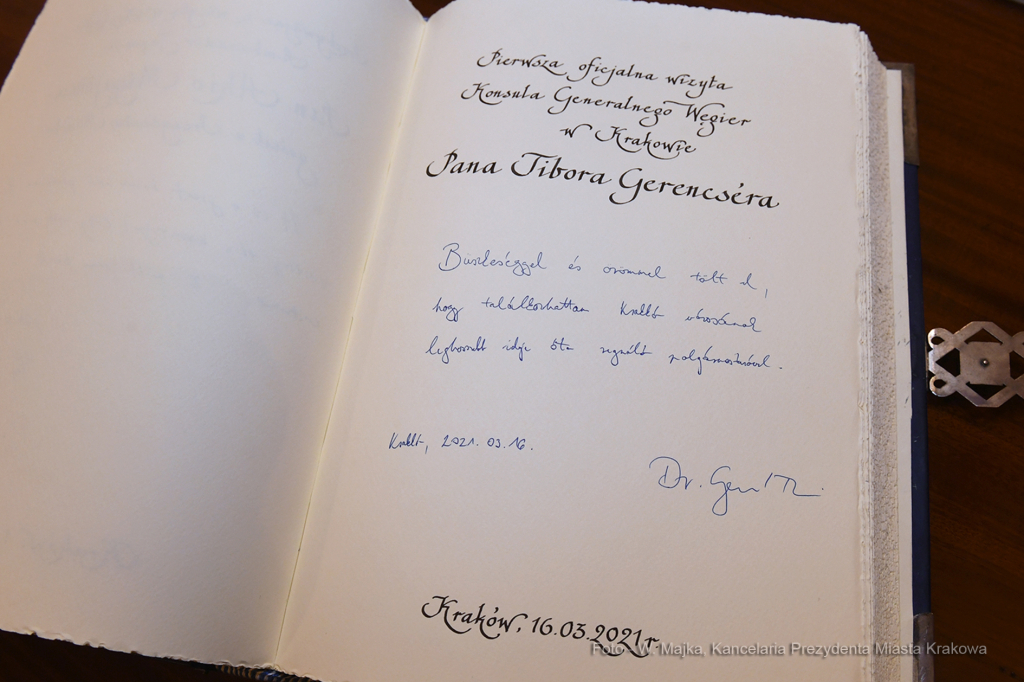 Pierwsza oficjalna wizyta
Konsula Generalnego Węgier
w Krakowie
Pana Tibora Gerencséra
Büszkeséggel és örömmel tölt el,
hogy találkozhattam Krakkó városának
leghosszabb ideje óta regnáló polgármesterével.
Krakkó, 2021. 03. 16.
Dr.
Kraków, 16.03.2021 r.
Foto: W. Majka, Kancelaria Prezydenta Miasta Krakowa